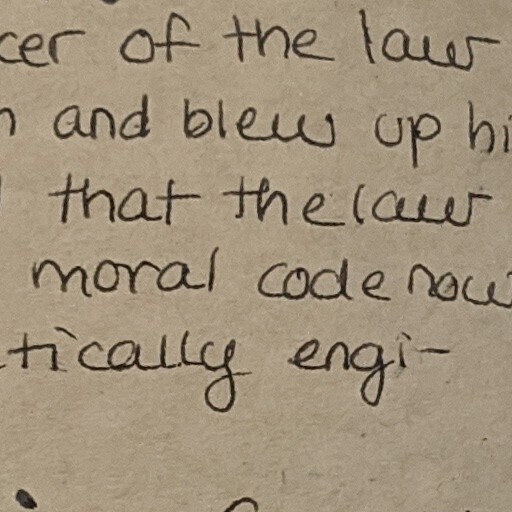 cer of the law
n and blew up hi
that the law
moral code now
tically engi-